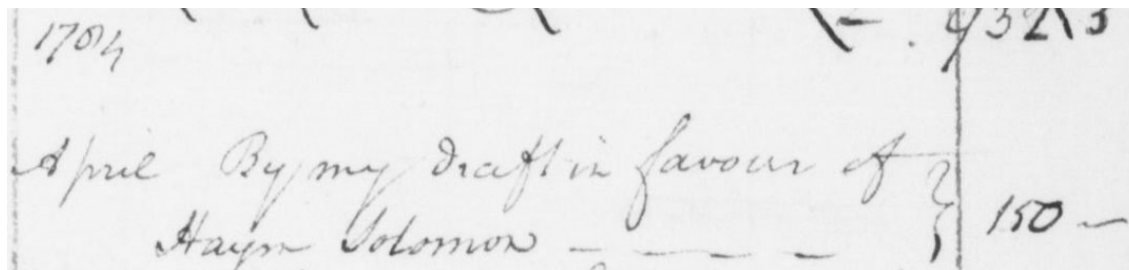 1784
April By my draft in favour of
Haym Solomon 150 —